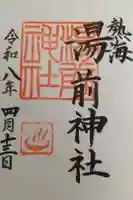 熱海
湯前神社
湯前
神社
令和八年
四月十三日